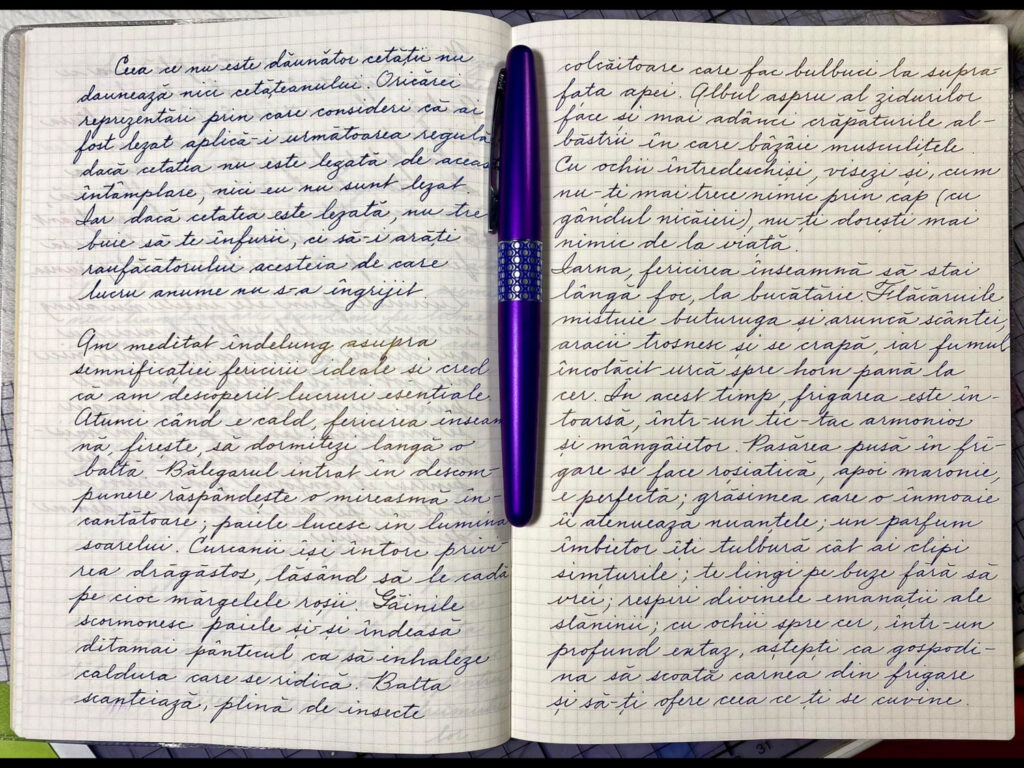 Ceea ce nu este dăunător cetății nu
daunează nici cetățeanului. Oricărei
reprezentări prin care consideri că ai
fost lezat aplică-i următoarea regulă
dacă cetatea nu este legată de aceas
întâmplare, nici eu nu sunt lezat.
Iar dacă cetatea este lezată, nu tre
buie să te înfurii, ci să-i arăti
raufăcătorului acesteia de care
lucru anume nu s-a îngrijit
Am meditat îndelung asupra
semnificației fericirii ideale si cred
că am descoperit lucruri esentiale.
Atunci când e cald, fericirea inseam
nă, fireste, să dormitezi langă o
baltă. Bălegarul intrat in descom-
punere răspândește o mireasmă în-
cantătoare; paiele lucesc în lumina
soarelui. Curcanii îsi intorc privi-
rea drăgăstos, lăsând să le cadă
pe cioc mărgelele roșii. Găinile
scormonesc paiele si-si îndeasă
ditamai pânticul ca să inhaleze
caldura care se ridică. Balta
scanteiază, plină de insecte
colcăitoare care fac bulbuci la supra-
fata apei. Albul aspru al zidurilor
face si mai adânci crăpăturile al-
băstrii în care bâzâie musculițele.
Cu ochii întredeschiși, visezi și, cum
nu-ti mai trece nimic prin cap (cu
gândul nicăieri), nu-ți dorești mai
nimic de la viată.
Iarna, fericirea înseamnă să stai
lângă foc, la bucătărie. Flăcăruile
mistuie buturuga si aruncă scântei,
aracii trosnesc și se crapă, iar fumul
încolăcit urcă spre horn pană la
cer. În acest timp, frigarea este în-
toarsă, într-un tic-tac armonios
și mângâietor. Pasărea pusă în fri-
gare se face roșiatică, apoi maronie,
e perfecta; grăsimea care o înmoaie
îi atenueaza nuanțele; un parfum
îmbietor îti tulbură cât ai clipi
simturile; te lingi pe buze fără să
vrei; respiri divinele emanații ale
slăninii; cu ochii spre cer, într-un
profund extaz, aștepți ca gospodi-
na să scoată carnea din frigare
și să-ți ofere ceea ce ți se cuvine.
31